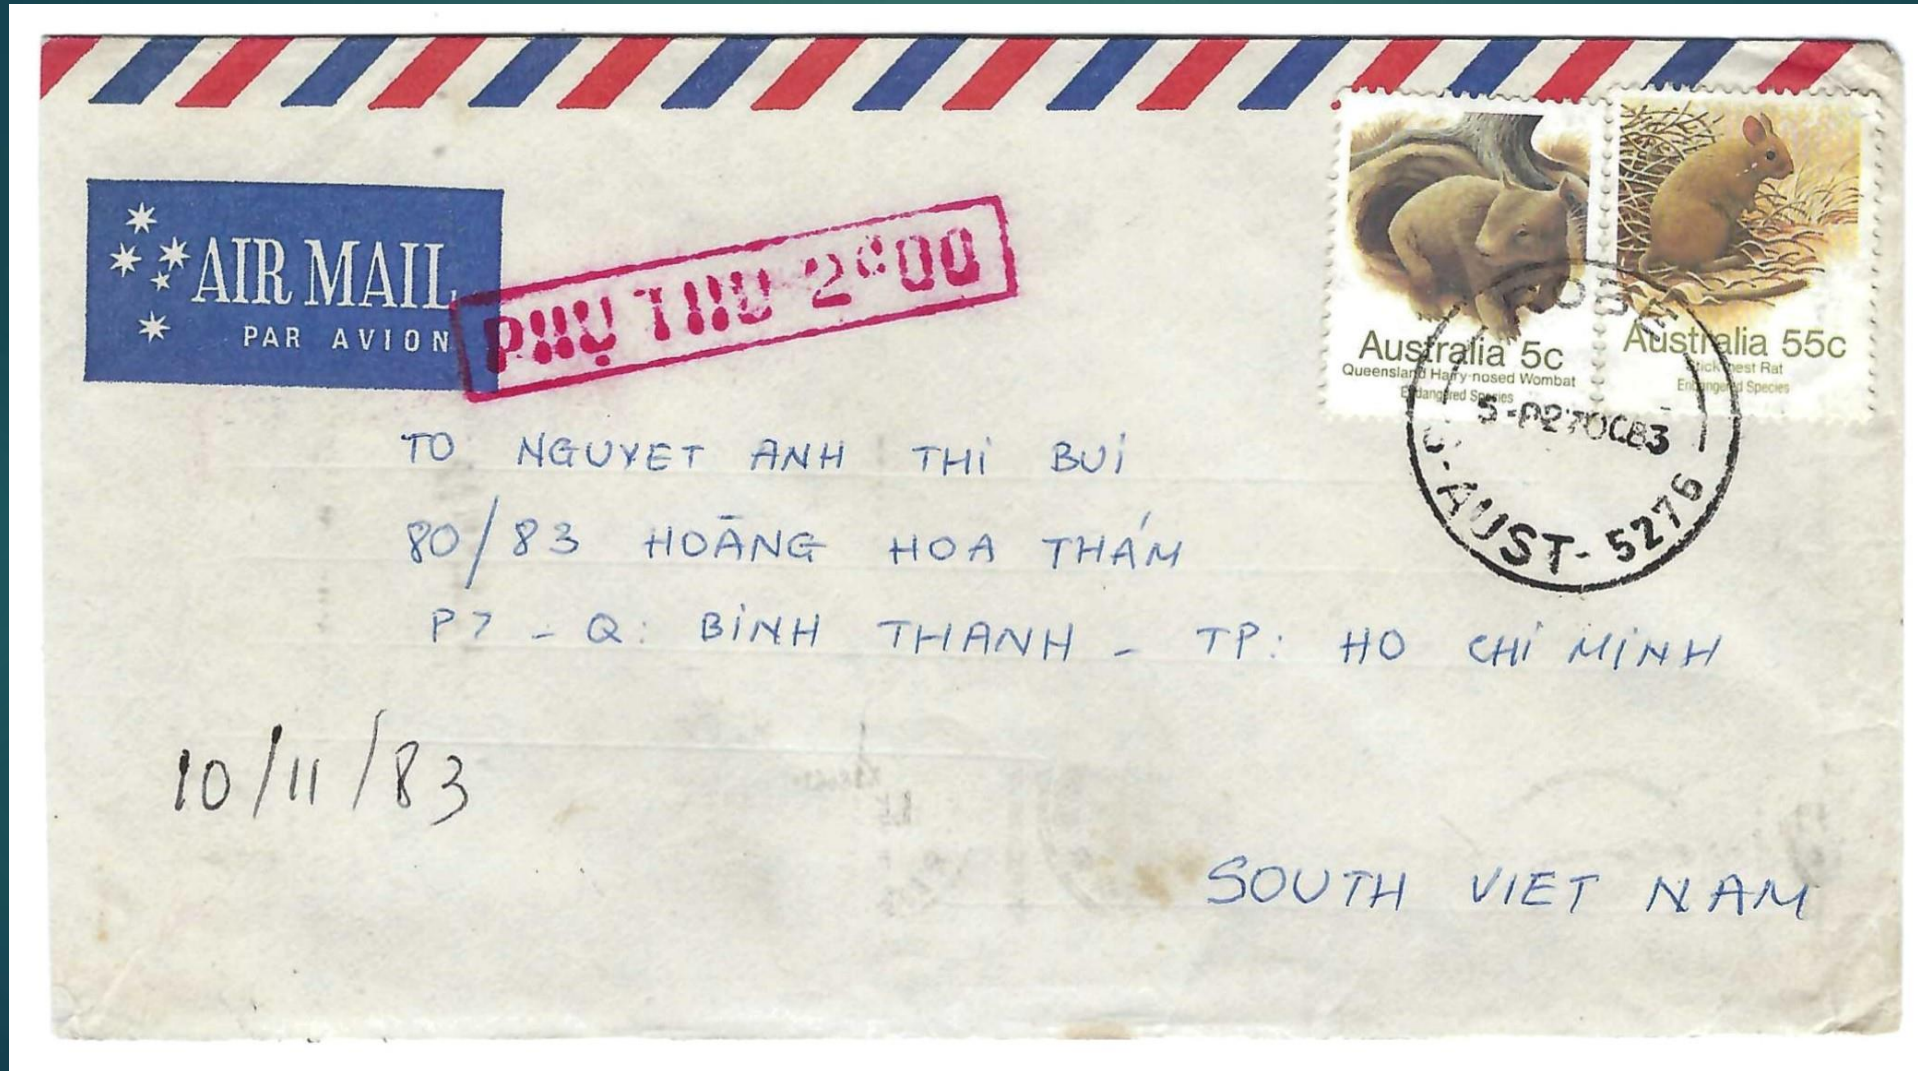 AIR MAIL
PAR AVION
PHỤ THU 2đ00
Australia 5c
Queensland Hairy-nosed Wombat
Endangered Species
Australia 55c
Stick-nest Rat
Endangered Species
5-P27OC83
AUST-5276
TO NGUYET ANH THI BUI
80/83 HOÀNG HOA THÁM
P7 - Q: BINH THANH - TP: HO CHI MINH
10/11/83
SOUTH VIET NAM